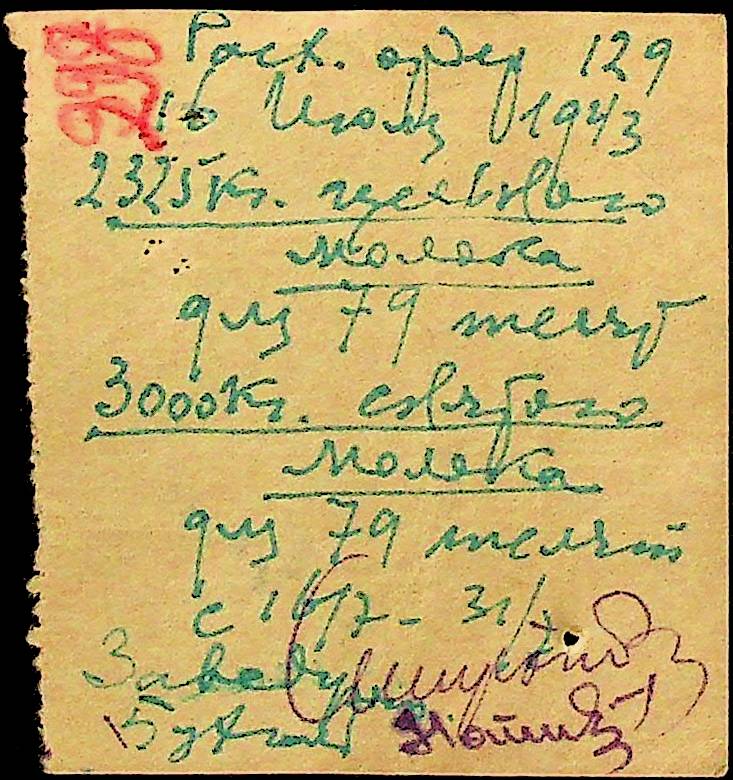 Расх. ордер 129
16 Июля 1943
2325 кг. цельного
молока
для 79 телят
3000 кг. снятого
молока
для 79 телят
с 16/7 - 31/7
Заведу